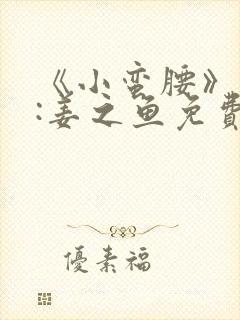 《小蛮腰》
:姜之鱼免費
優素福